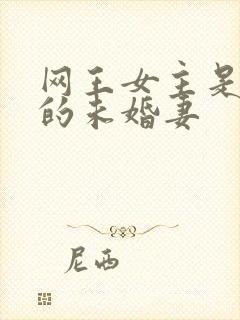 网王女主是
的未婚妻
尼西